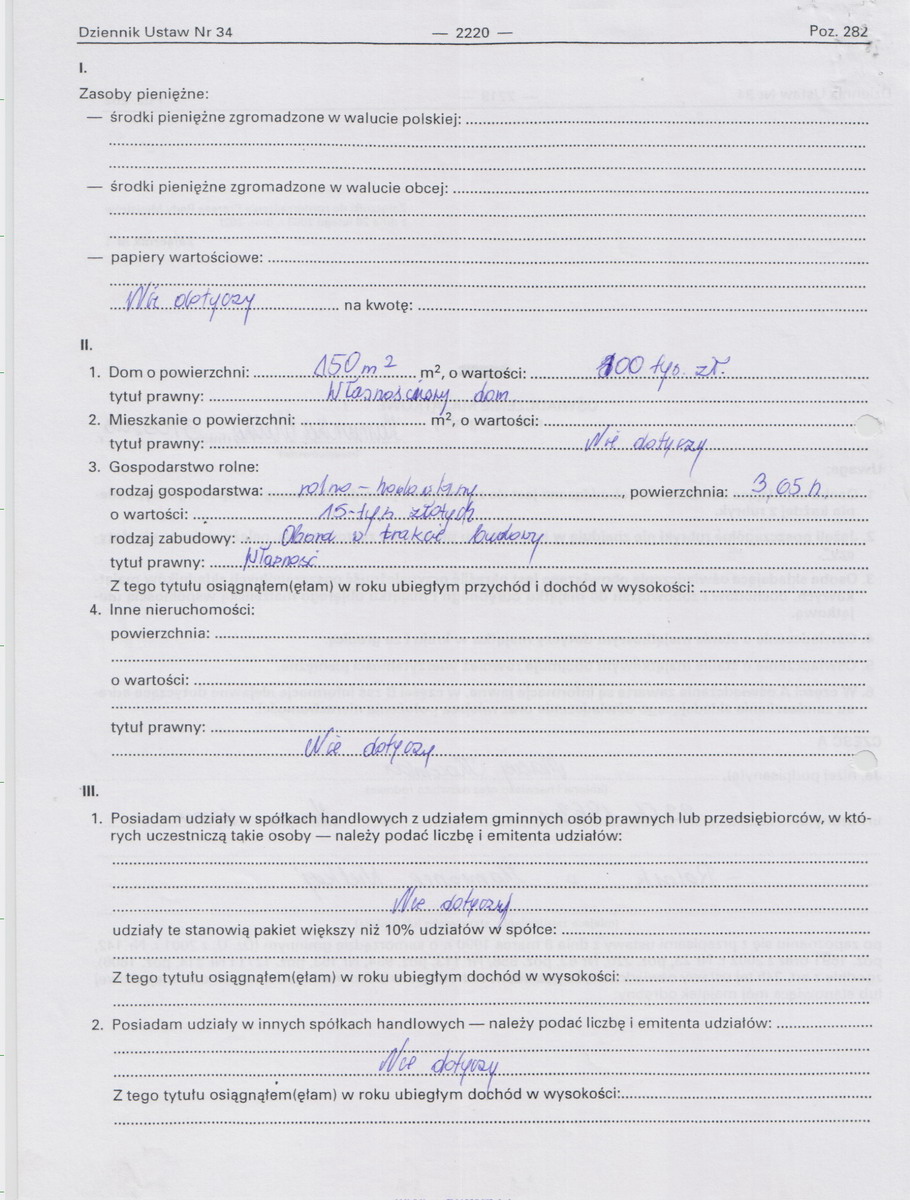 Dziennik Ustaw Nr 34 — 2220 — Poz. 282
I.
Zasoby pieniężne:
— środki pieniężne zgromadzone w walucie polskiej:
— środki pieniężne zgromadzone w walucie obcej:
— papiery wartościowe:
Nie dotyczy na kwotę:
II.
1. Dom o powierzchni: 150 m2 m², o wartości: 100 tyś. zł.
tytuł prawny: Własnościowy dom
2. Mieszkanie o powierzchni: m², o wartości:
tytuł prawny: Nie dotyczy
3. Gospodarstwo rolne:
rodzaj gospodarstwa: rolno – hodowlany, powierzchnia: 3,65 h
o wartości: 15-tyś złotych
rodzaj zabudowy: Obora w trakcie budowy
tytuł prawny: Własność
Z tego tytułu osiągnąłem(ęłam) w roku ubiegłym przychód i dochód w wysokości:
4. Inne nieruchomości:
powierzchnia:
o wartości:
tytuł prawny:
Nie dotyczy
III.
1. Posiadam udziały w spółkach handlowych z udziałem gminnych osób prawnych lub przedsiębiorców, w któ-
rych uczestniczą takie osoby — należy podać liczbę i emitenta udziałów:
Nie dotyczy
udziały te stanowią pakiet większy niż 10% udziałów w spółce:
Z tego tytułu osiągnąłem(ęłam) w roku ubiegłym dochód w wysokości:
2. Posiadam udziały w innych spółkach handlowych — należy podać liczbę i emitenta udziałów:
Nie dotyczy
Z tego tytułu osiągnąłem(ęłam) w roku ubiegłym dochód w wysokości: